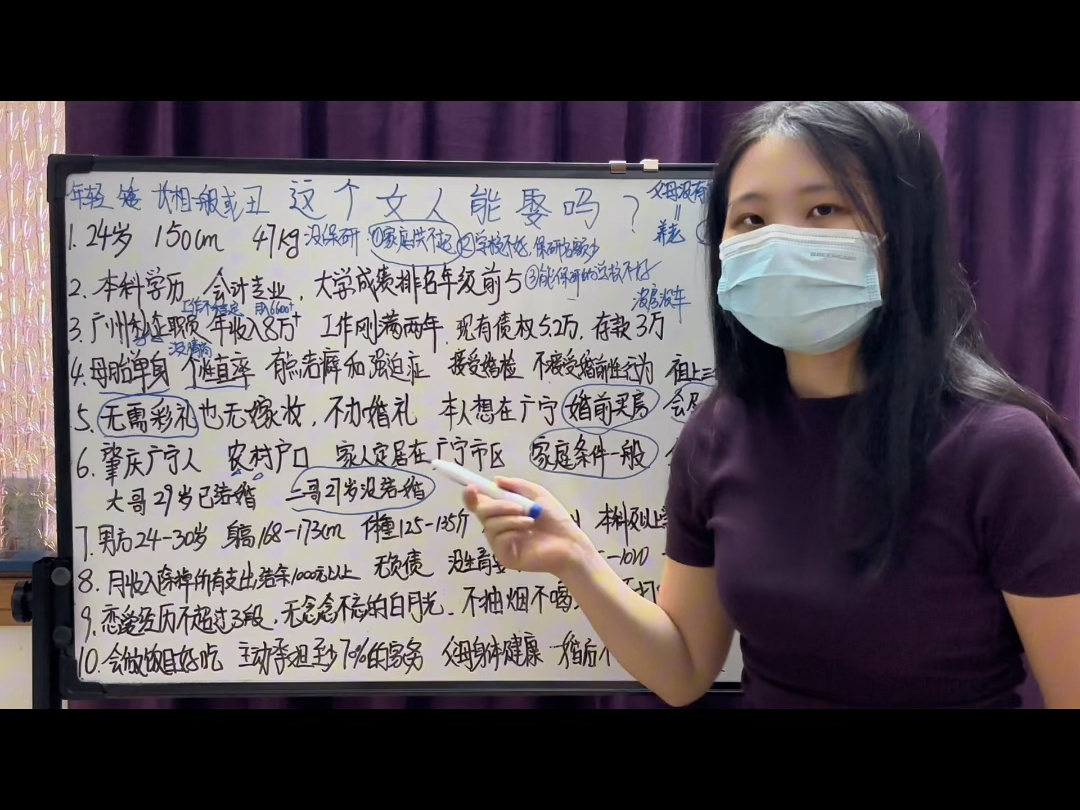 年轻 矮 长相一般或丑 这个女人能娶吗？ 父母没有
养老
1. 24岁 150cm 47kg 没保研 ①家庭供不起 ②学校不好,保研名额少
2. 本科学历 会计专业, 大学成绩排名年级前5 ③能保研的学校不好
工作不稳定 月6600+ 没房没车
3. 广州私企职员 年收入8万+ 工作刚满两年 现有债权5.2万, 存款3万
没情商
4. 母胎单身 个性直率 有点洁癖和强迫症 接受婚检 不接受婚前性行为 祖上三
5. 无需彩礼也无嫁妆, 不办婚礼 本人想在广宁婚前买房
6. 肇庆广宁人 农村户口 家人定居在广宁市区 家庭条件一般
大哥29岁已结婚 二哥27岁没结婚
7. 男方24-30岁 身高168-173cm 体重125-135斤 本科及以上
8. 月收入除掉所有支出,结余1000元以上 无负债 没生育
9. 恋爱经历不超过3段, 无念念不忘的白月光, 不抽烟不喝
10. 会做饭且好吃 主动承担至少70%的家务 父母身体健康 婚后不